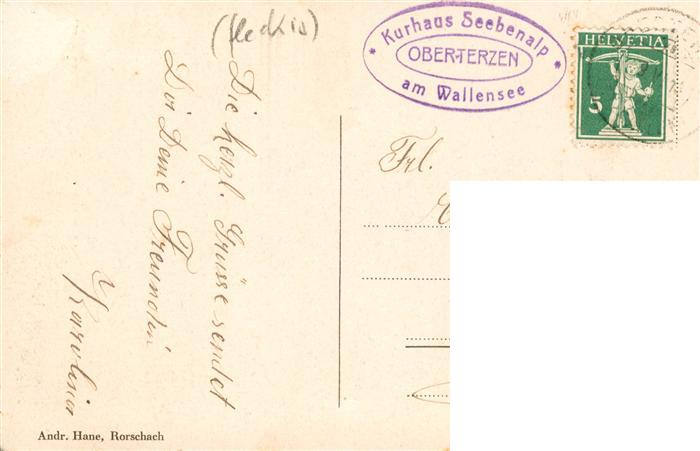 (fleckig)
Kurhaus Seebenalp
OBERTERZEN
am Wallensee
HELVETIA
5
Frl.
Die herzl. Grüsse sendet
Dir Deine Freundin
Karolina
Andr. Hane, Rorschach